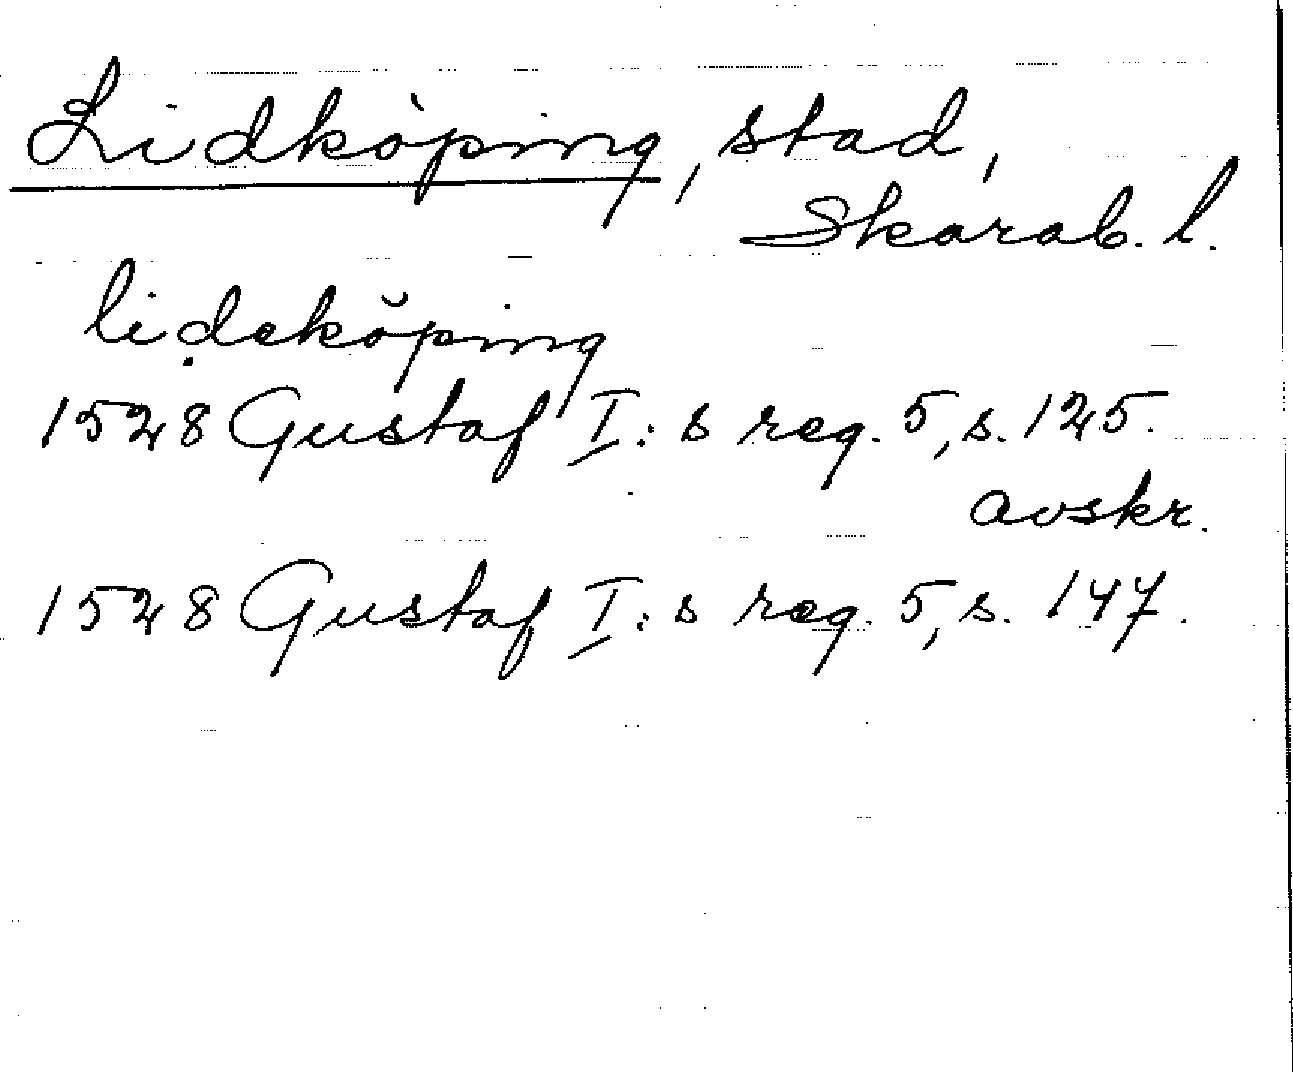 Lidköping, stad,
Skarab. l.
lideköping
1528 Gustaf I:s reg. 5, s. 125.
avskr.
1528 Gustaf I:s reg. 5, s. 147.